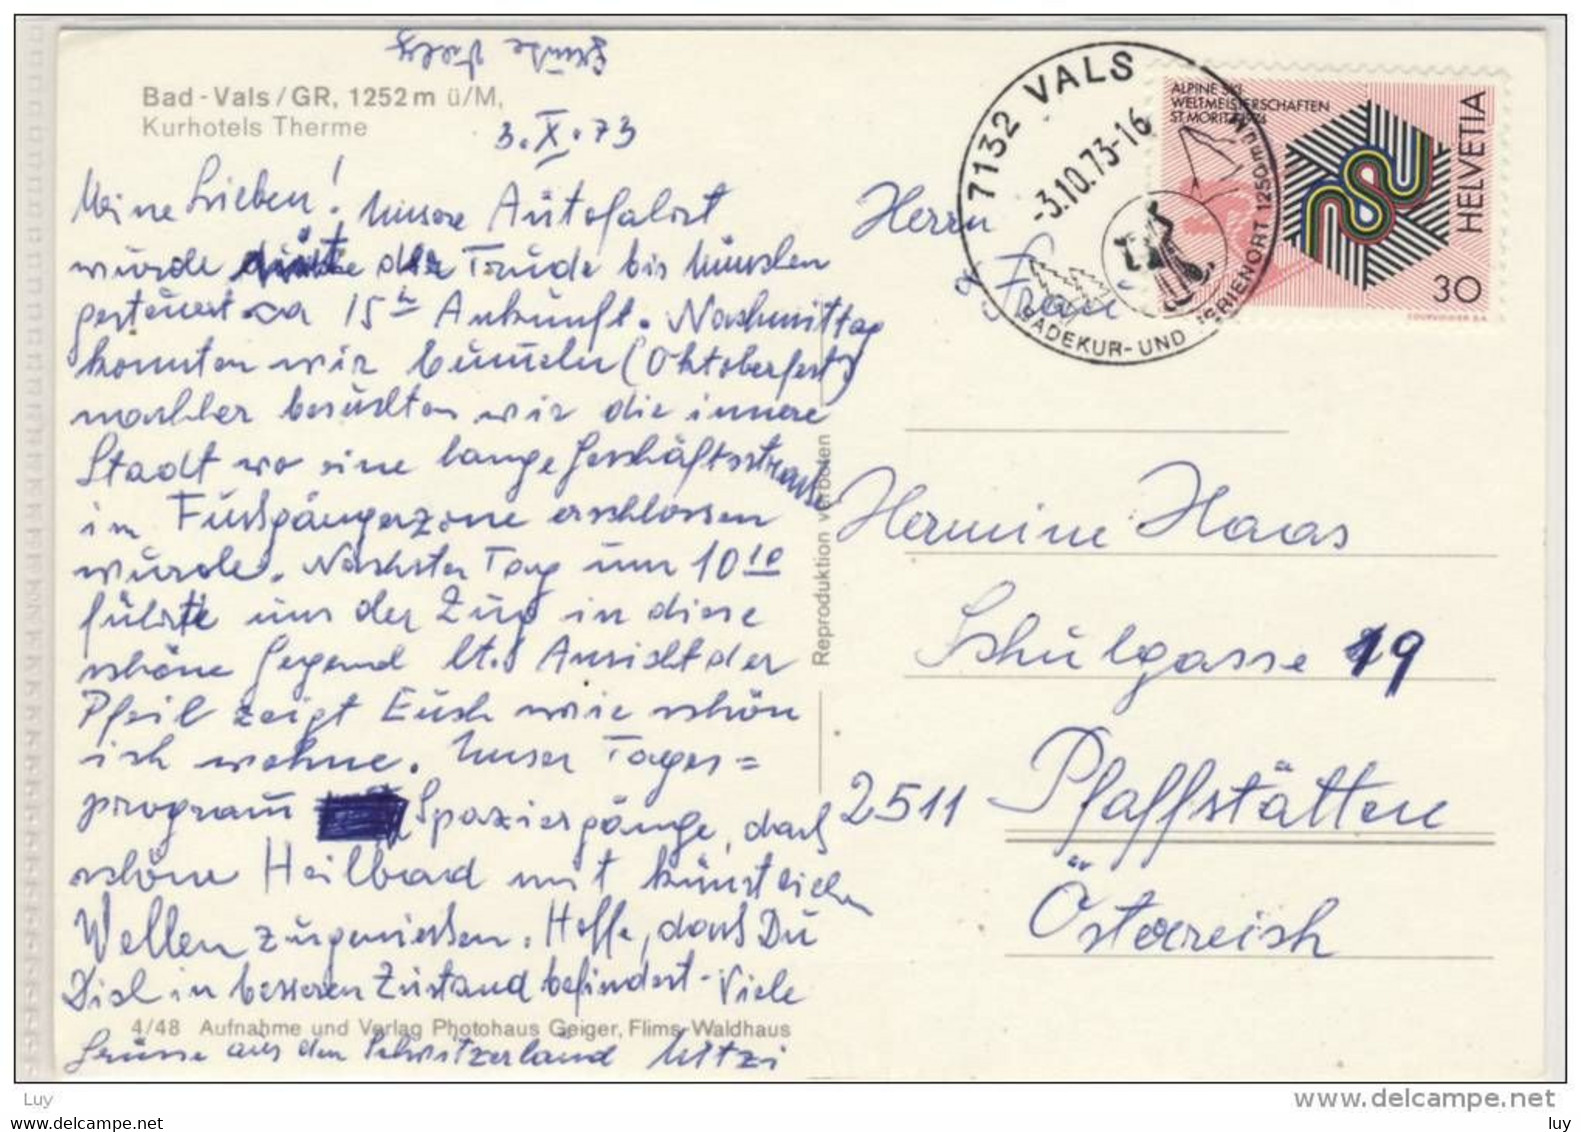 Bad-Vals/GR, 1252 m ü/M,
Kurhotels Therme
3.X.73
Meine Lieben! Unsere Autofahrt
wurde der Trude bis München
gesteuert ca 15h Ankunft. Nachmittag
konnten wir bummeln (Oktoberfest)
nachher besuchten wir die innere
Stadt wo eine lange Geschäftsstrasse
in Fussgängerzone erschlossen
wurde. Nächster Tag um 10 10
führte uns der Zug in diese
schöne Gegend lt. Ansicht der
Pfeil zeigt Euch wie schön
ich wohne. Unser Tages=
program Spaziergänge, das
schöne Heilbad mit künstlichen
Wellen zu geniessen. Hoffe, dass Du
Dich in besseren Zustand befindest - Viele
4/48 Aufnahme und Verlag Photohaus Geiger, Flims-Waldhaus
Grüsse aus den Schwitzerland Mitzi
Reproduktion verboten
7132 VALS
-3.10.73-16
BADEKUR- UND FERIENORT 1250m ü.M.
ALPINE SKI
WELTMEISTERSCHAFTEN
ST. MORITZ 1974
HELVETIA
30
COURVOISIER S.A.
Herrn
& Frau
Hermine Haas
Schulgasse 19
2511 Pfaffstätten
Österreich
Luy
www.delcampe.net
luy